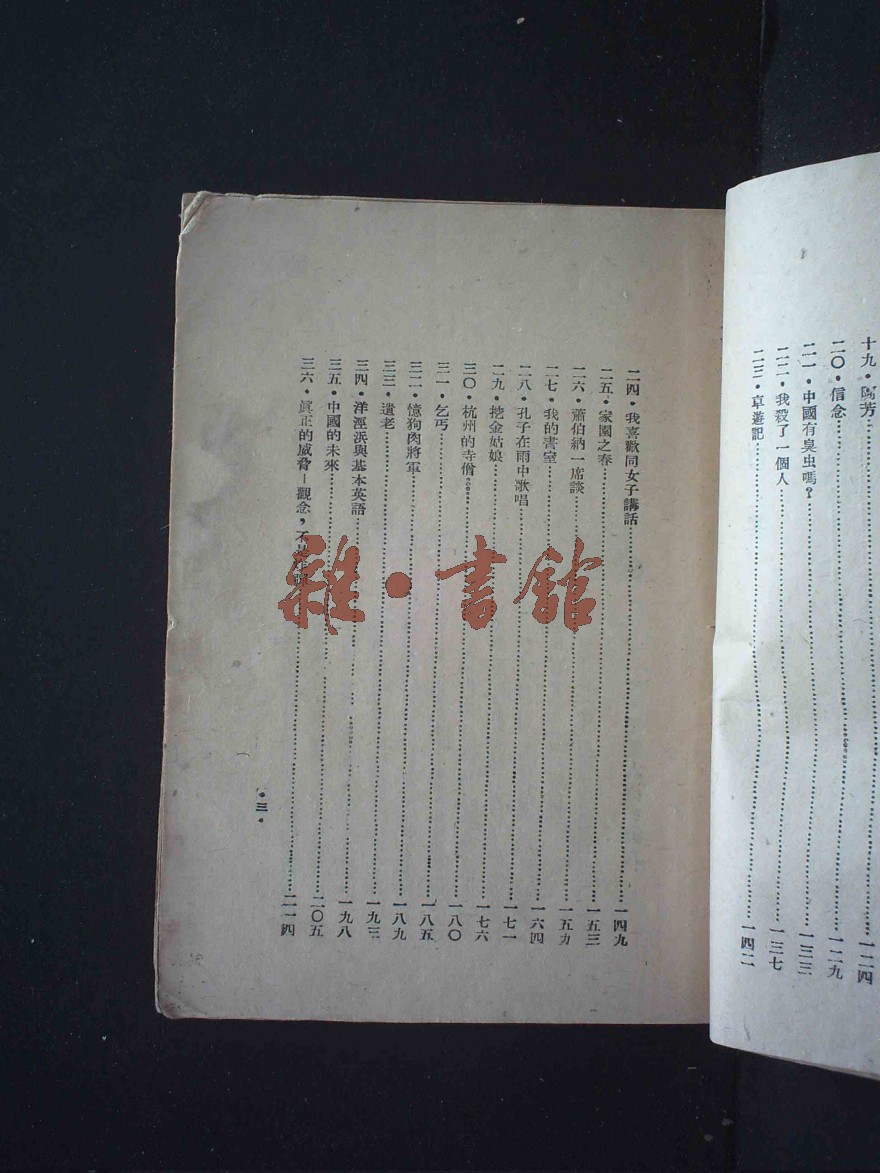 十九・阿芳……一二四
二〇・信念……一二九
二一・中國有臭虫嗎?……一三三
二二・我殺了一個人……一三七
二三・卓遊記……一四二
二四・我喜歡同女子講話……一四九
二五・家園之春……一五三
二六・蕭伯納一席談……一五九
二七・我的書室……一六四
二八・孔子在雨中歌唱……一七一
二九・挖金姑娘……一七六
三〇・杭州的寺僧……一八〇
三一・乞丐……一八五
三二・憶狗肉將軍……一八九
三三・遺老……一九三
三四・洋涇浜與基本英語……一九八
三五・中國的未來……二〇五
三六・眞正的威脅—觀念,不是……二一四
・三・
雜・書館